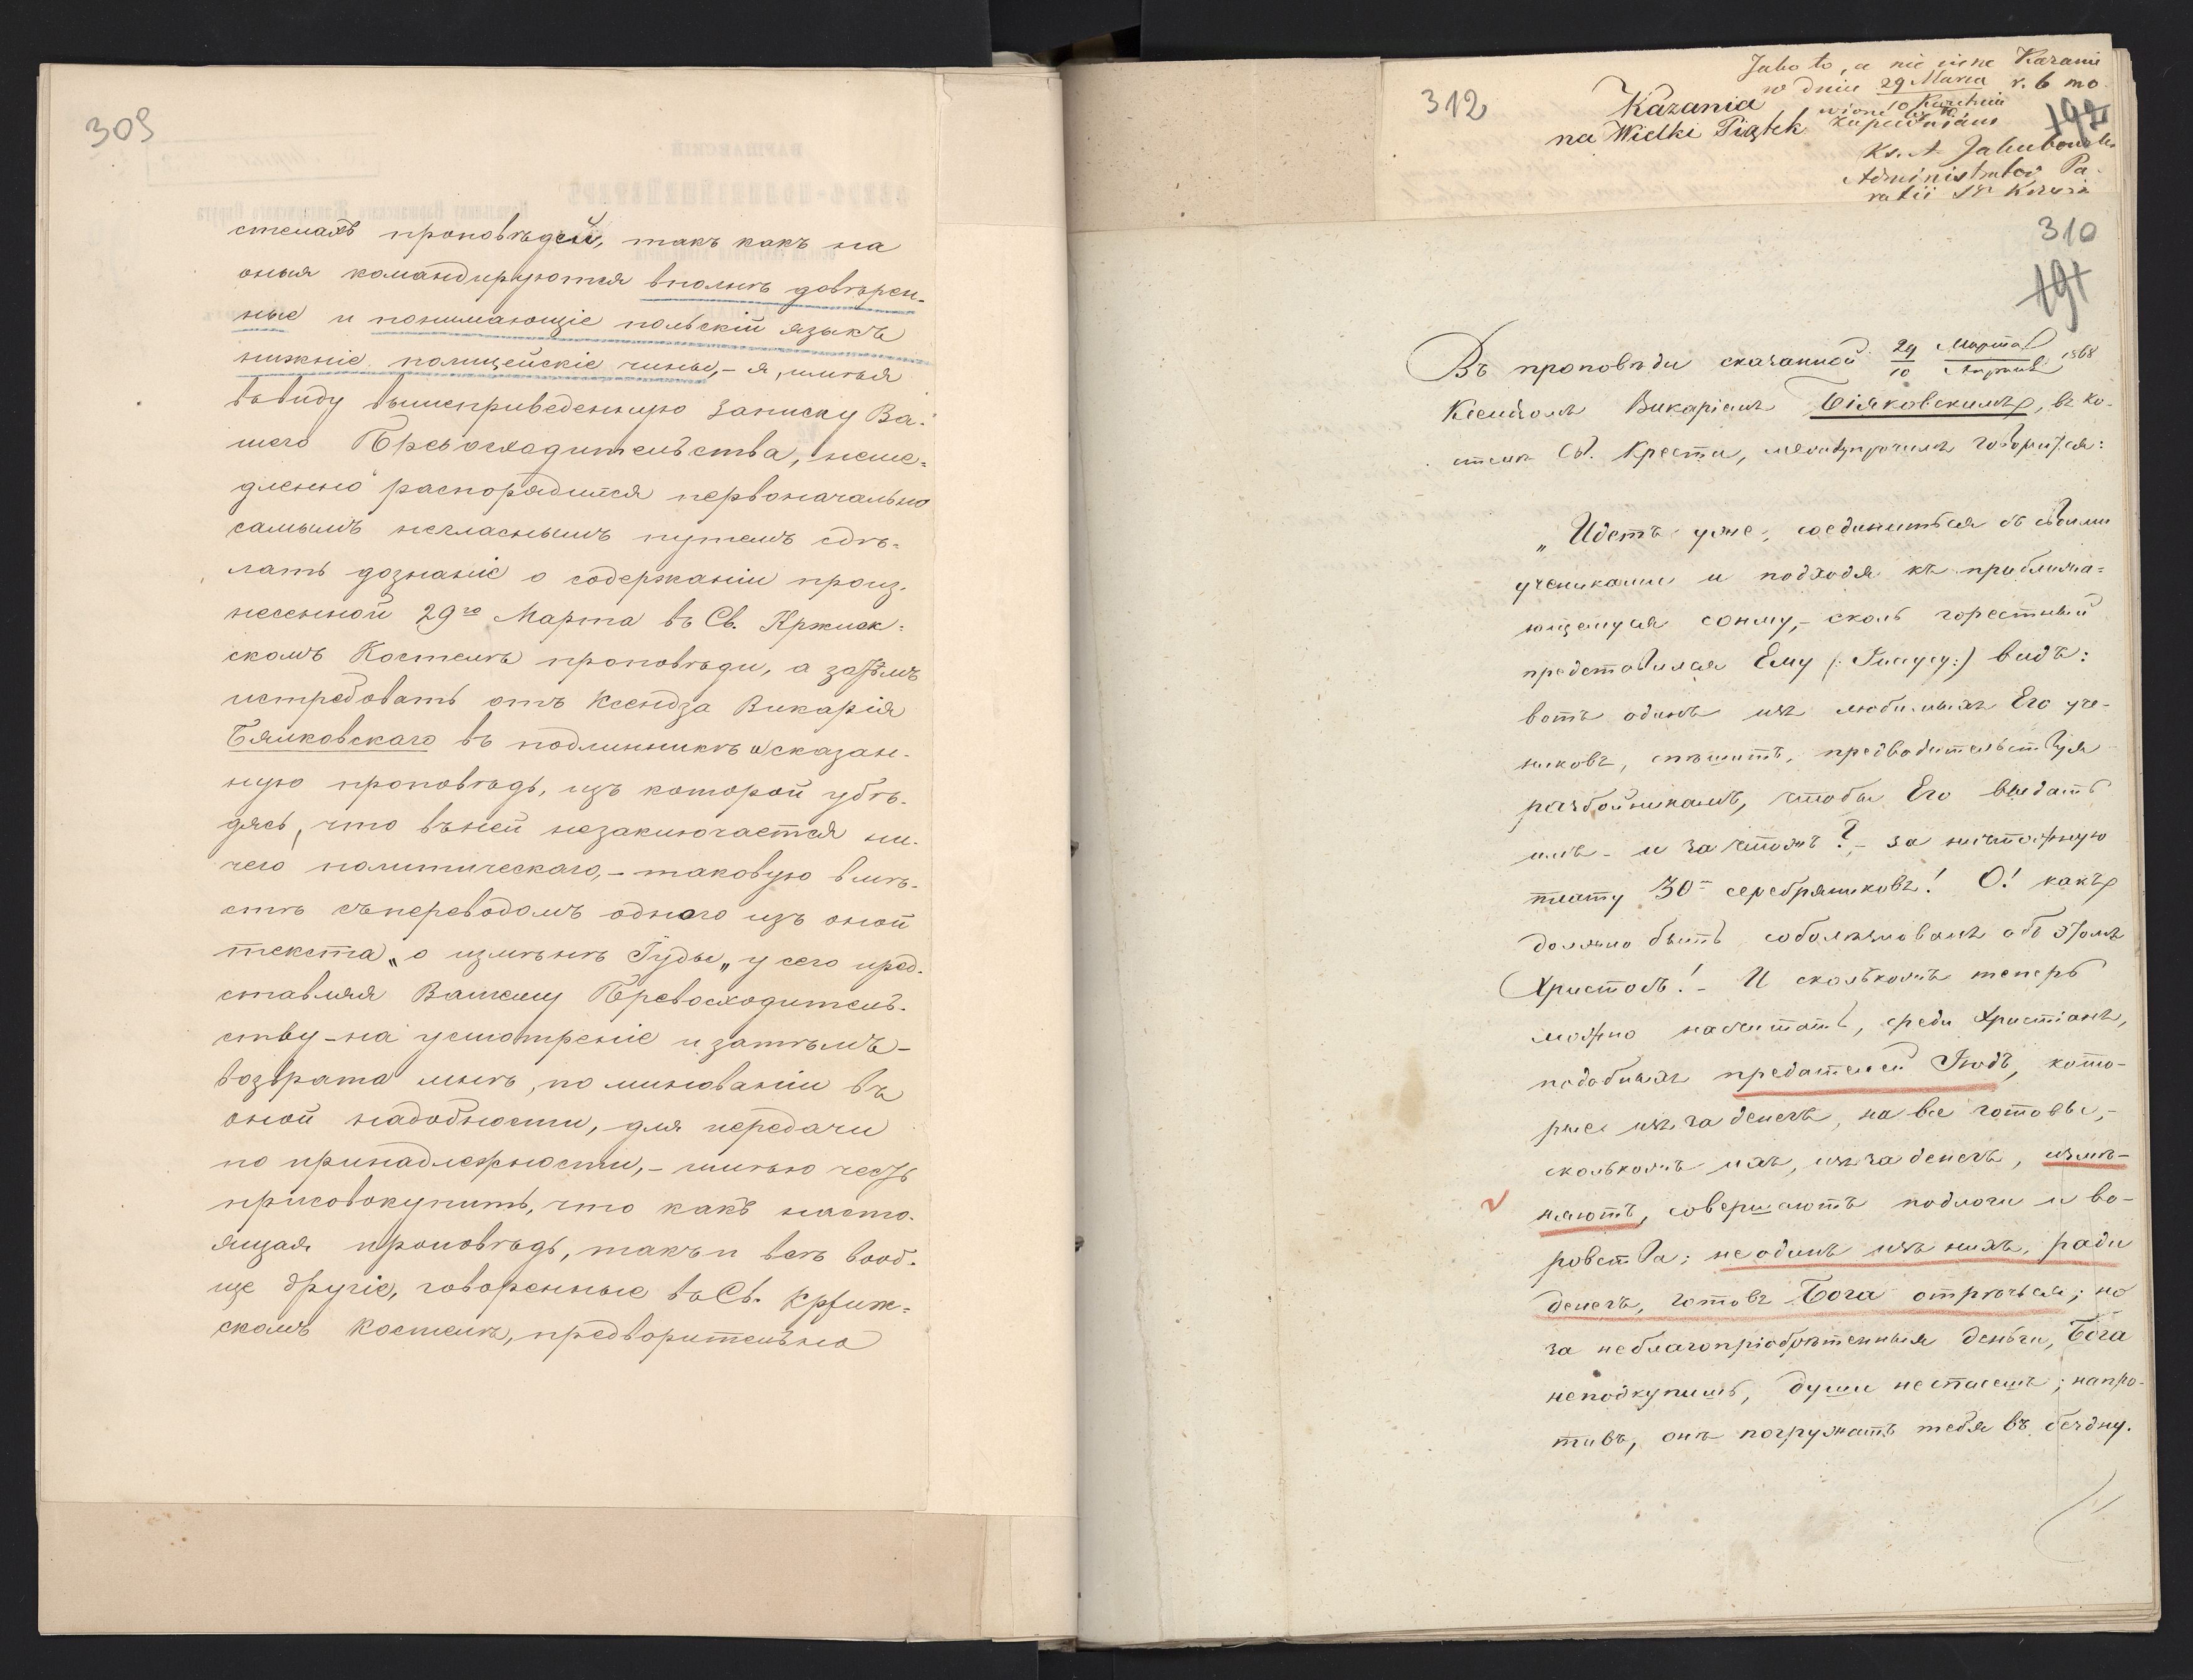 309
стелахъ проповѣдей, такъ какъ на
оныя командируются вполнѣ довѣрен-
ные и понимающіе польскій языкъ
нижніе полицейскіе чины, - я, имѣя
ввиду вышеприведенную записку Ва-
шего Превосходительства, неме-
дленно распорядился первоначально
самымъ негласнымъ путемъ сдѣ-
лать дознаніе о содержаніи произ-
несенной 29го Марта въ Св. Кржиж-
скомъ Костелѣ проповѣди, а затѣмъ
истребовать отъ Ксендза Викарія
Бялковскаго въ подлинникѣ сказан-
ную проповѣдь, изъ которой убѣ-
дясь, что въ ней незаключается ни-
чего политическаго, - таковую вмѣ-
стѣ съ переводомъ одного изъ оной
текста „о измѣнѣ Іуды„ у сего пред-
ставляя Вашему Превосходитель-
ству - на усмотреніе и затѣмъ -
возврата мнѣ, по минованіи въ
оной надобности, для передачи
по принадлежности, - имѣю честь
присовокупить, что какъ насто-
ящая проповѣдь, такъ и всѣ вооб-
ще другіе, говоренные въ Св. Кржиж-
скомъ костелѣ, предворительно
312
Kazania
na Wielki Piątek
Jako to, a nie inne Kazanie
w dniu 29 Marca r. b mó-
10 Kwietnia
wione było zapewniam
Ks. A Jakubowski
Administrator Pa-
rafii Sgo Krzyża
197
310
191
Въ проповѣди сказанной 29 Марта / 10 Апрѣля 1868
Ксендзомъ Викаріемъ Бѣяковскимъ, въ ко-
стелѣ Св. Креста, между прочимъ говорится:
„Идетъ уже, соединиться съ своими
учениками и подходя къ приближа-
ющемуся сонму, - сколь горестный
представился Ему (: Іисусу :) видъ:
вотъ одинъ изъ любимыхъ Его уче-
никовъ, спѣшитъ, предводительствуя
разбойникамъ, чтобы Его выдать
имъ - и за чтожъ? - за ничтожную
плату 30ть серебряниковъ! О! какъ
должно быть соболѣзновалъ объ этомъ
Христосъ! - И сколькожъ теперь
можно насчитать, среди Христіанъ,
подобныхъ предателей Іюдъ, кото-
рые изъ за денегъ, на все готовы, -
сколькожъ ихъ, изъ за денегъ, измѣ-
няютъ, совершаютъ подлоги и во-
ровства; не одинъ изъ нихъ, ради
денегъ, готовъ Бога отрѣчься; но
за неблагопріобрѣтенныя деньги, Бога
неподкупишь, души неспасешь; напро-
тивъ, онѣ погружатъ тебя въ бездну.